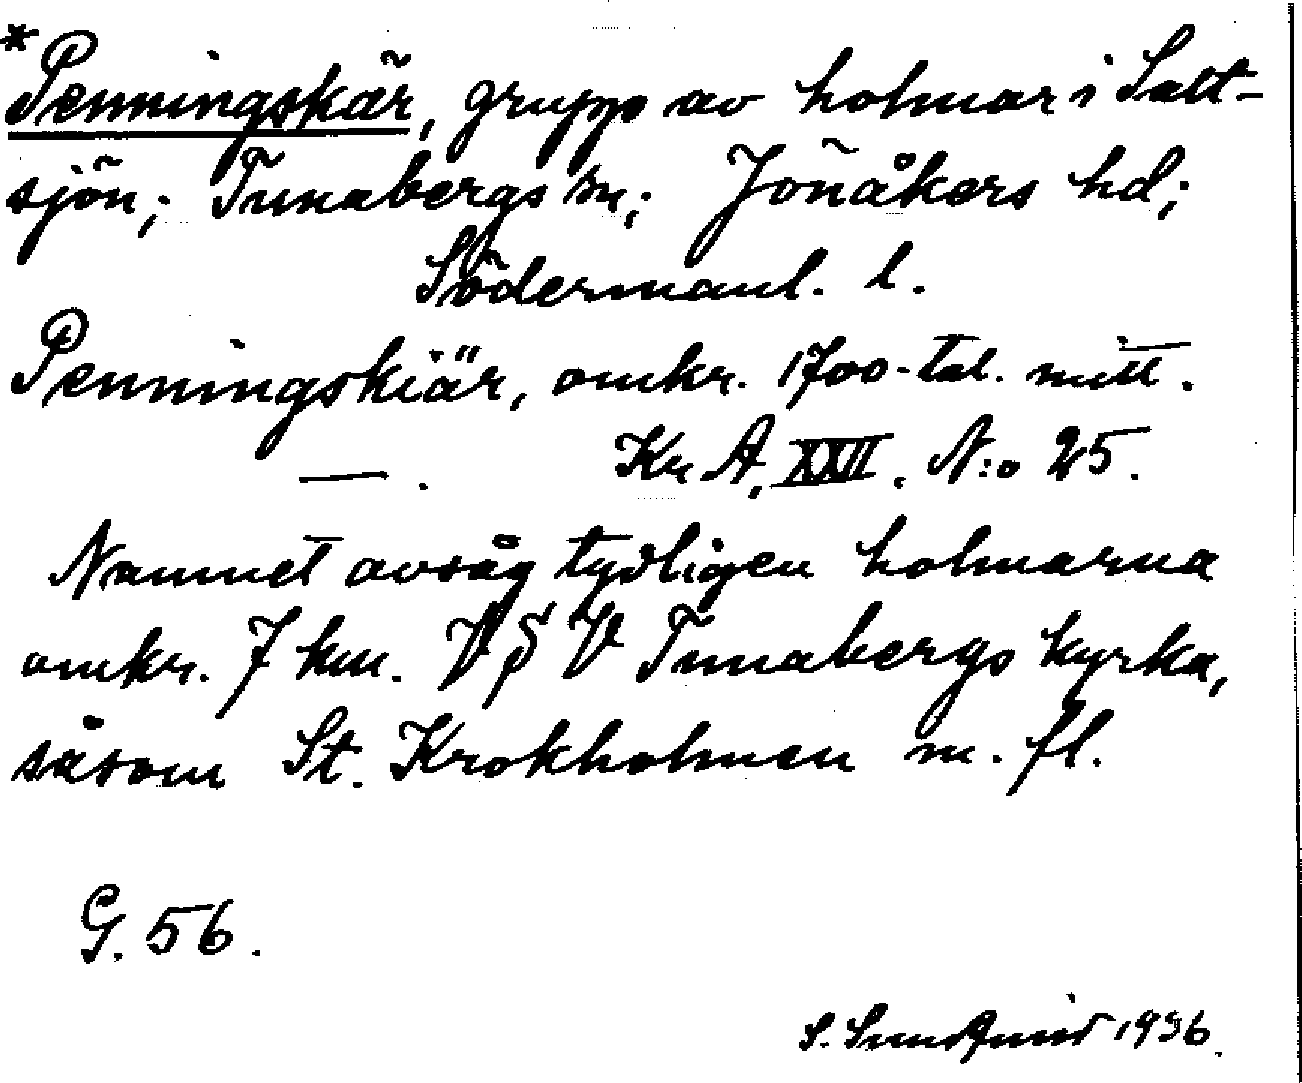 *Penningskär, grupp av holmar i Salt-
sjön; Tunabergs sn; Jönåkers hd;
Södermanl. l.
Penningskiär, omkr. 1700-tal. mitt.
—. Kr A, XXII. N:o 25.
Namnet avsåg tydligen holmarna
omkr. 7 km. V § V Tunabergs kyrka,
såsom St. Krokholmen m. fl.
G. 56.
S. Sundquist 1936.